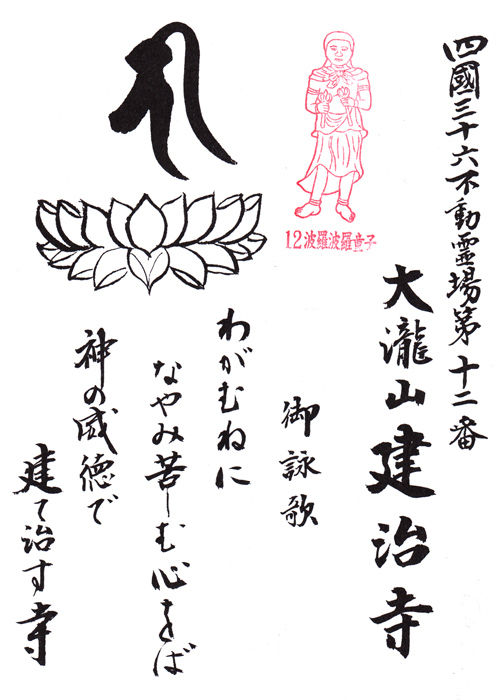 四國三十六不動霊場第十二番
大瀧山建治寺
12波羅波羅童子
御詠歌
わがむねに
なやみ苦しむ心をば
神の威徳で
建て治す寺